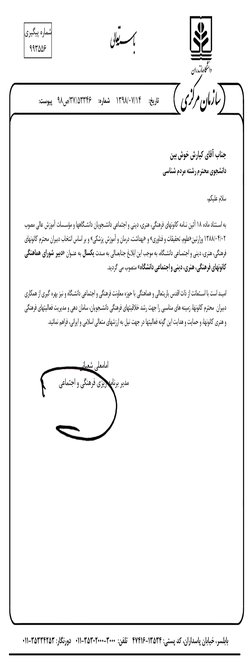 باسمه تعالی
شماره پیگیری
۹۹۳۵۵۶
دانشگاه مازندران
(سازمان مرکزی)
تاریخ: ۱۳۹۸/۰۷/۱۴ شماره: ۳۷/۵۳۴۶/ص۹۸ پیوست:
جناب آقای کیارش خوش بین
دانشجوی محترم رشته مردم شناسی
سلام علیکم،
به استناد ماده ۱۸ آئین نامه کانونهای فرهنگی، هنری، دینی و اجتماعی دانشجویان دانشگاهها و مؤسسات آموزش عالی مصوب
۱۳۸۸/۰۴/۰۲ وزارتین «علوم، تحقیقات و فناوری» و «بهداشت درمان و آموزش پزشکی» و بر اساس انتخاب دبیران محترم کانونهای
فرهنگی، هنری، دینی و اجتماعی دانشگاه، به موجب این ابلاغ جنابعالی به مدت یکسال به عنوان «دبیر شورای هماهنگی
کانونهای فرهنگی، هنری، دینی و اجتماعی دانشگاه» منصوب می گردید.
امید است با استعانت از ذات اقدس باریتعالی و هماهنگی با حوزه معاونت فرهنگی و اجتماعی دانشگاه و نیز بهره گیری از همکاری
دبیران محترم کانونها، زمینه های مناسبی را جهت رشد خلاقیتهای فرهنگی دانشجویان، سامان دهی و مدیریت فعالیتهای فرهنگی
و هنری کانونها، و حمایت و هدایت این گونه فعالیتها در جهت نیل به ارزشهای متعالی اسلامی و ایرانی، فراهم نمائید.
امامعلی شعبانی
مدیر برنامه ریزی فرهنگی و اجتماعی
بابلسر، خیابان پاسداران، کد پستی: ۱۳۵۳۴-۴۷۴۱۶ تلفن: ۳۰۰۰-۳۵۳۰۲۰۰۰-۰۱۱ دورنگار: ۳۵۳۳۴۲۵۲-۰۱۱